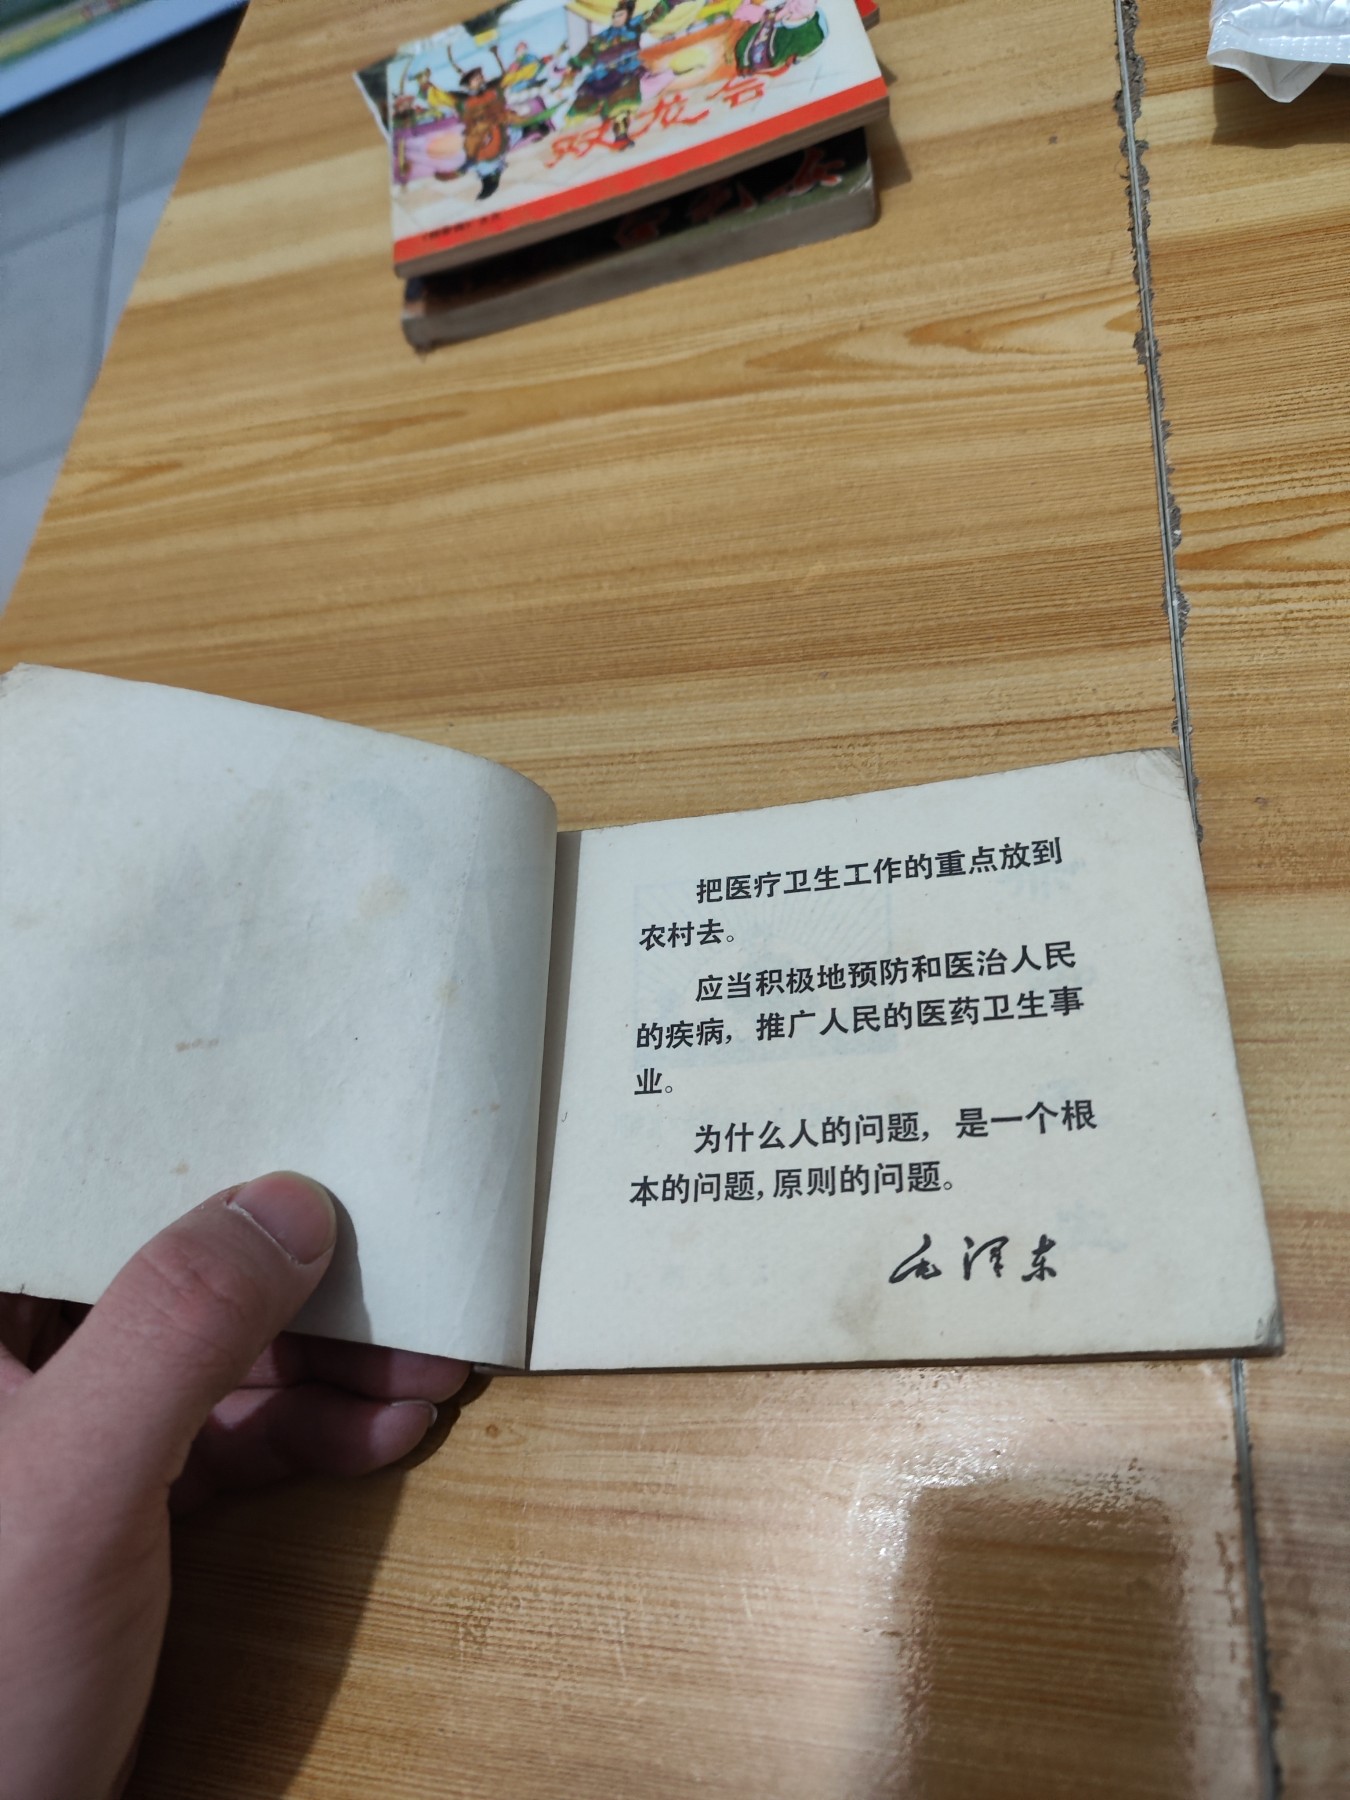 双龙会
把医疗卫生工作的重点放到
农村去。
应当积极地预防和医治人民
的疾病，推广人民的医药卫生事
业。
为什么人的问题，是一个根
本的问题，原则的问题。
毛泽东